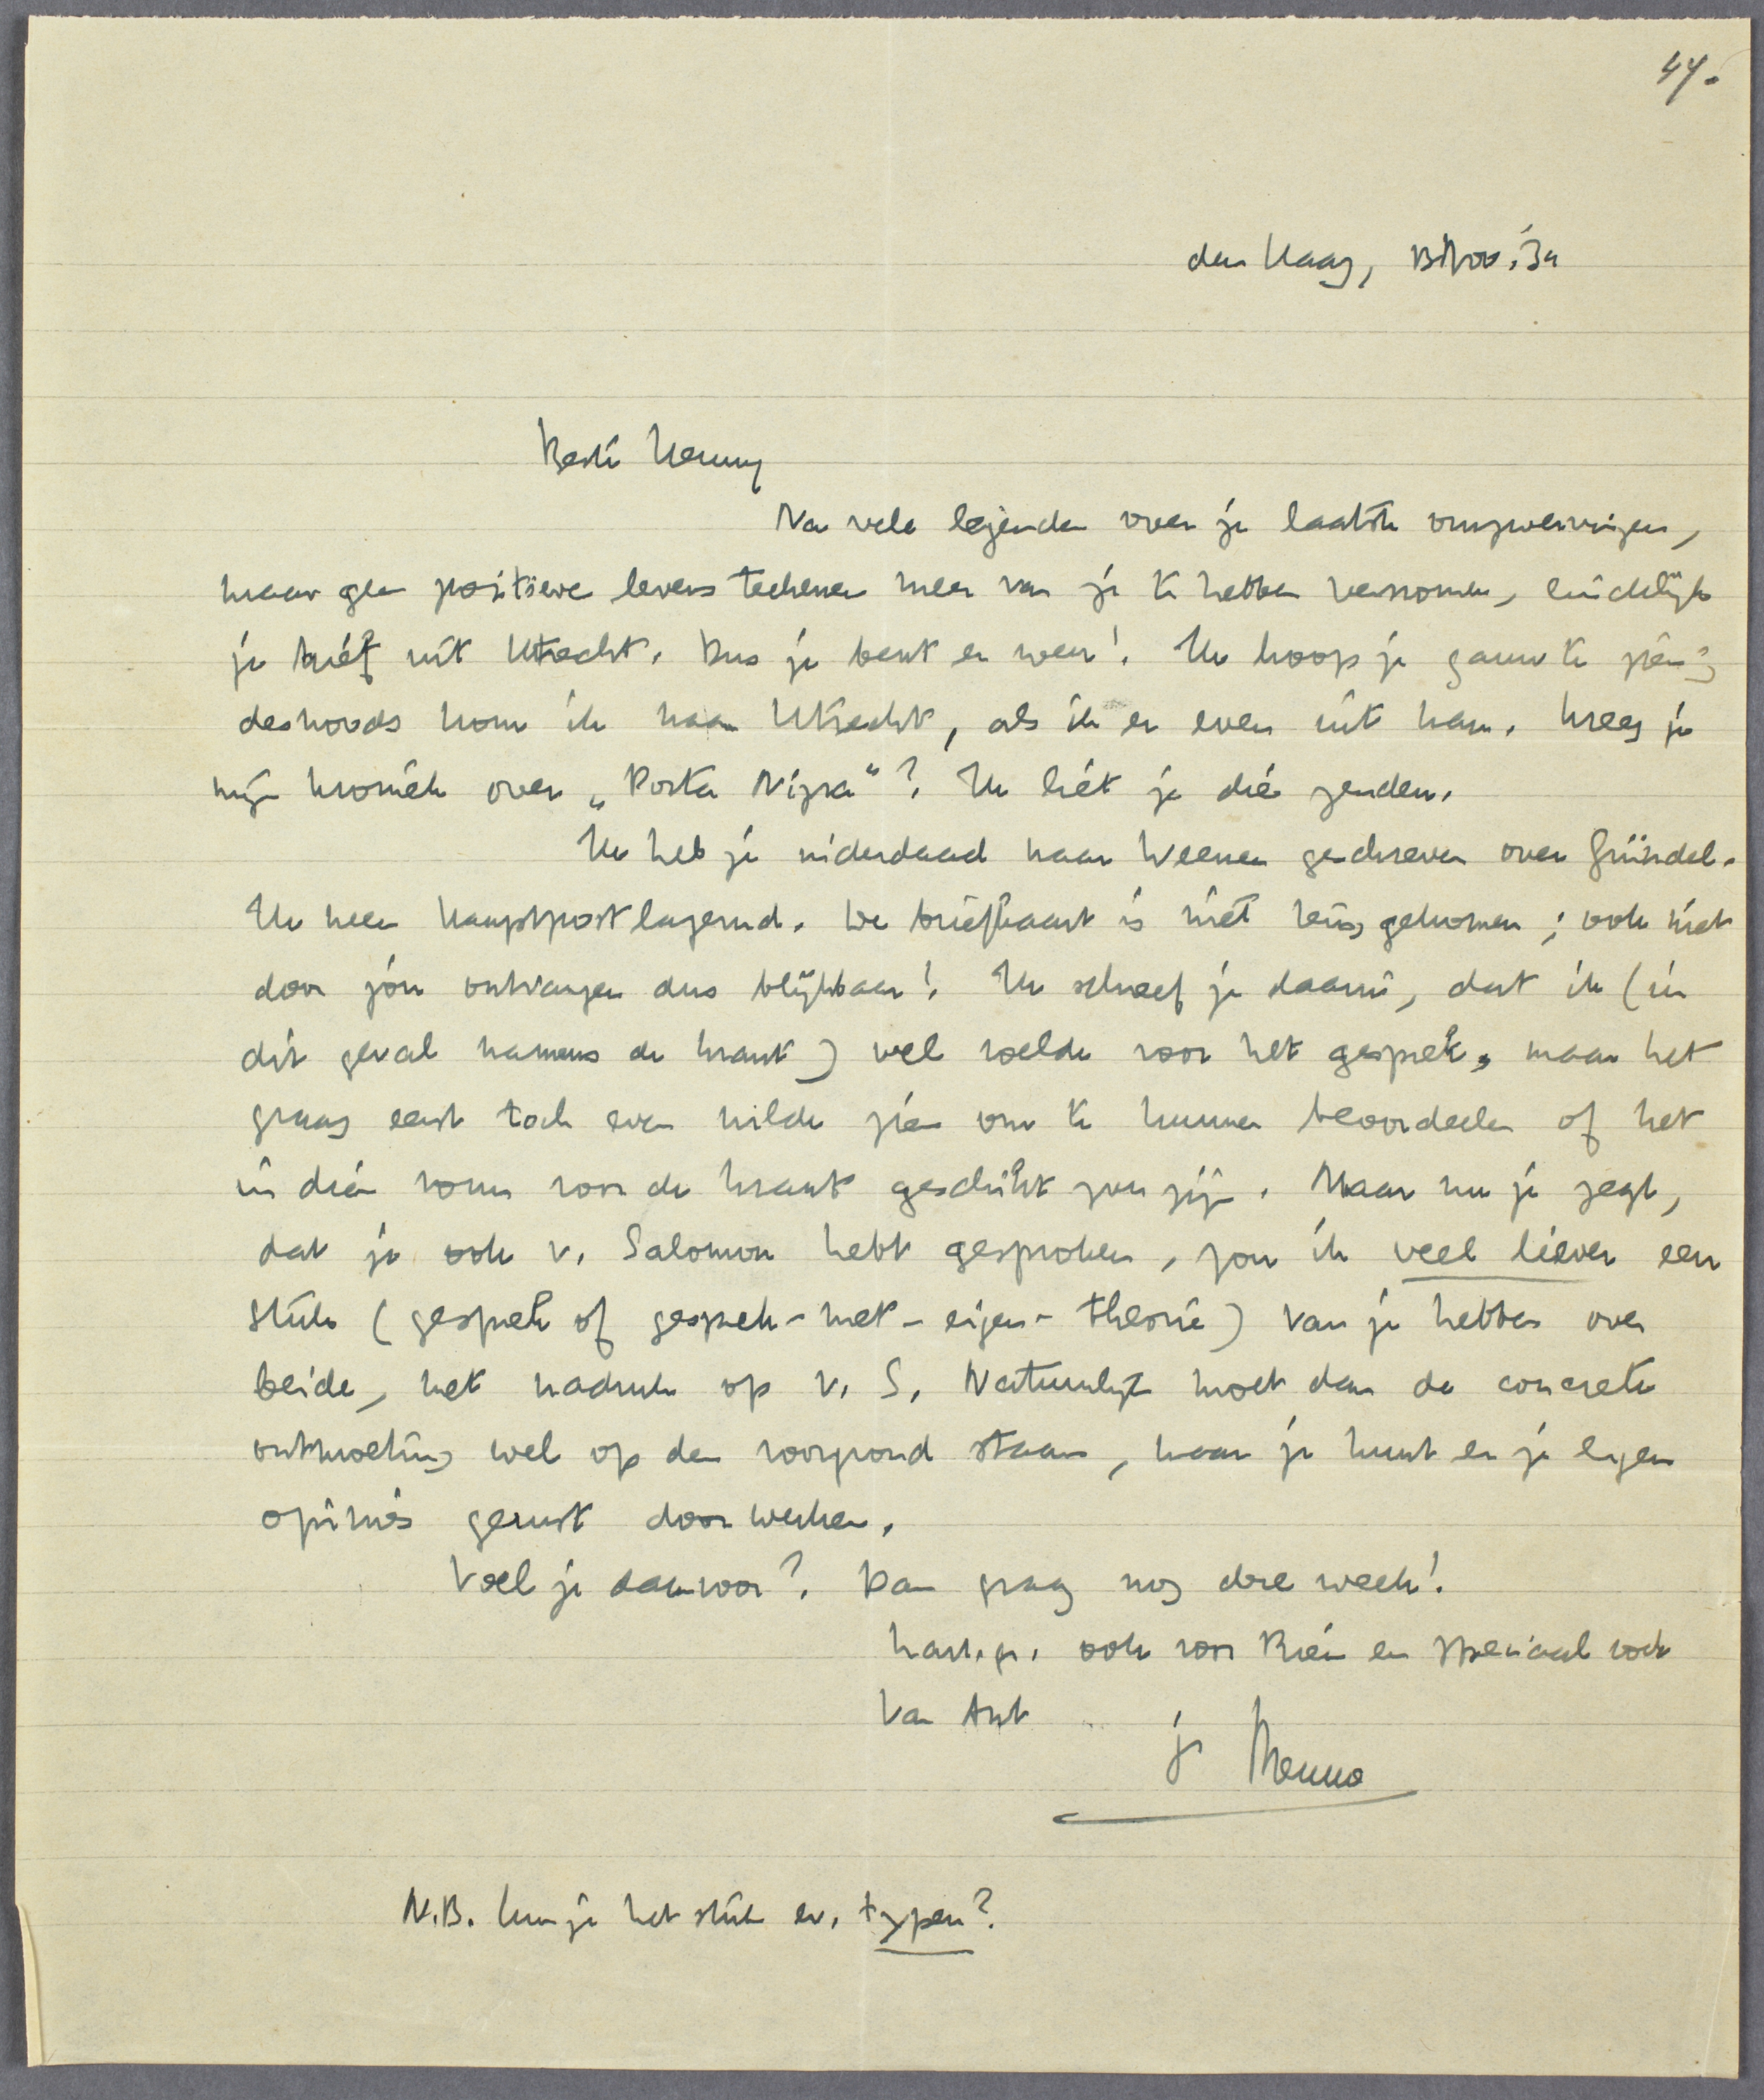 44.
den Haag, 13 Nov. '34
Beste Henny
Na vele legenden over je laatste omzwervingen,
maar geen positieve levensteekenen meer van je te hebben vernomen, eindelijk
je brief uit Utrecht. Dus je bent er weer! Ik hoop je gauw te zien;
desnoods kom ik naar Utrecht, als ik er even uit kan. Kreeg je
mijn kroniek over „Porta Nigra"? Ik liet je die zenden.
Ik heb je inderdaad naar Weenen geschreven over Gründel.
Ik meen Hauptpostlagernd. De briefkaart is niet terug gekomen; ook niet
door jou ontvangen dus blijkbaar! Ik schreef je daarin, dat ik (in
dit geval namens de krant) wel voelde voor het gesprek, maar het
graag eerst toch even wilde zien om te kunnen beoordeelen of het
in dien vorm voor de krant geschikt zou zijn. Maar nu je zegt,
dat je ook v. Salomon hebt gesproken, zou ik veel liever een
stuk (gesprek of gesprek-met-eigen-theorie) van je hebben over
beide, met nadruk op v. S. Natuurlijk moet dan de concrete
ontmoeting wel op den voorgrond staan, maar je kunt er je eigen
opinies gerust doorwerken.
Voel je daarvoor? Dan graag nog deze week!
hart. gr. ook voor Rien en speciaal ook
van Ant
je Menno
N.B. Kun je het stuk ev. typen?